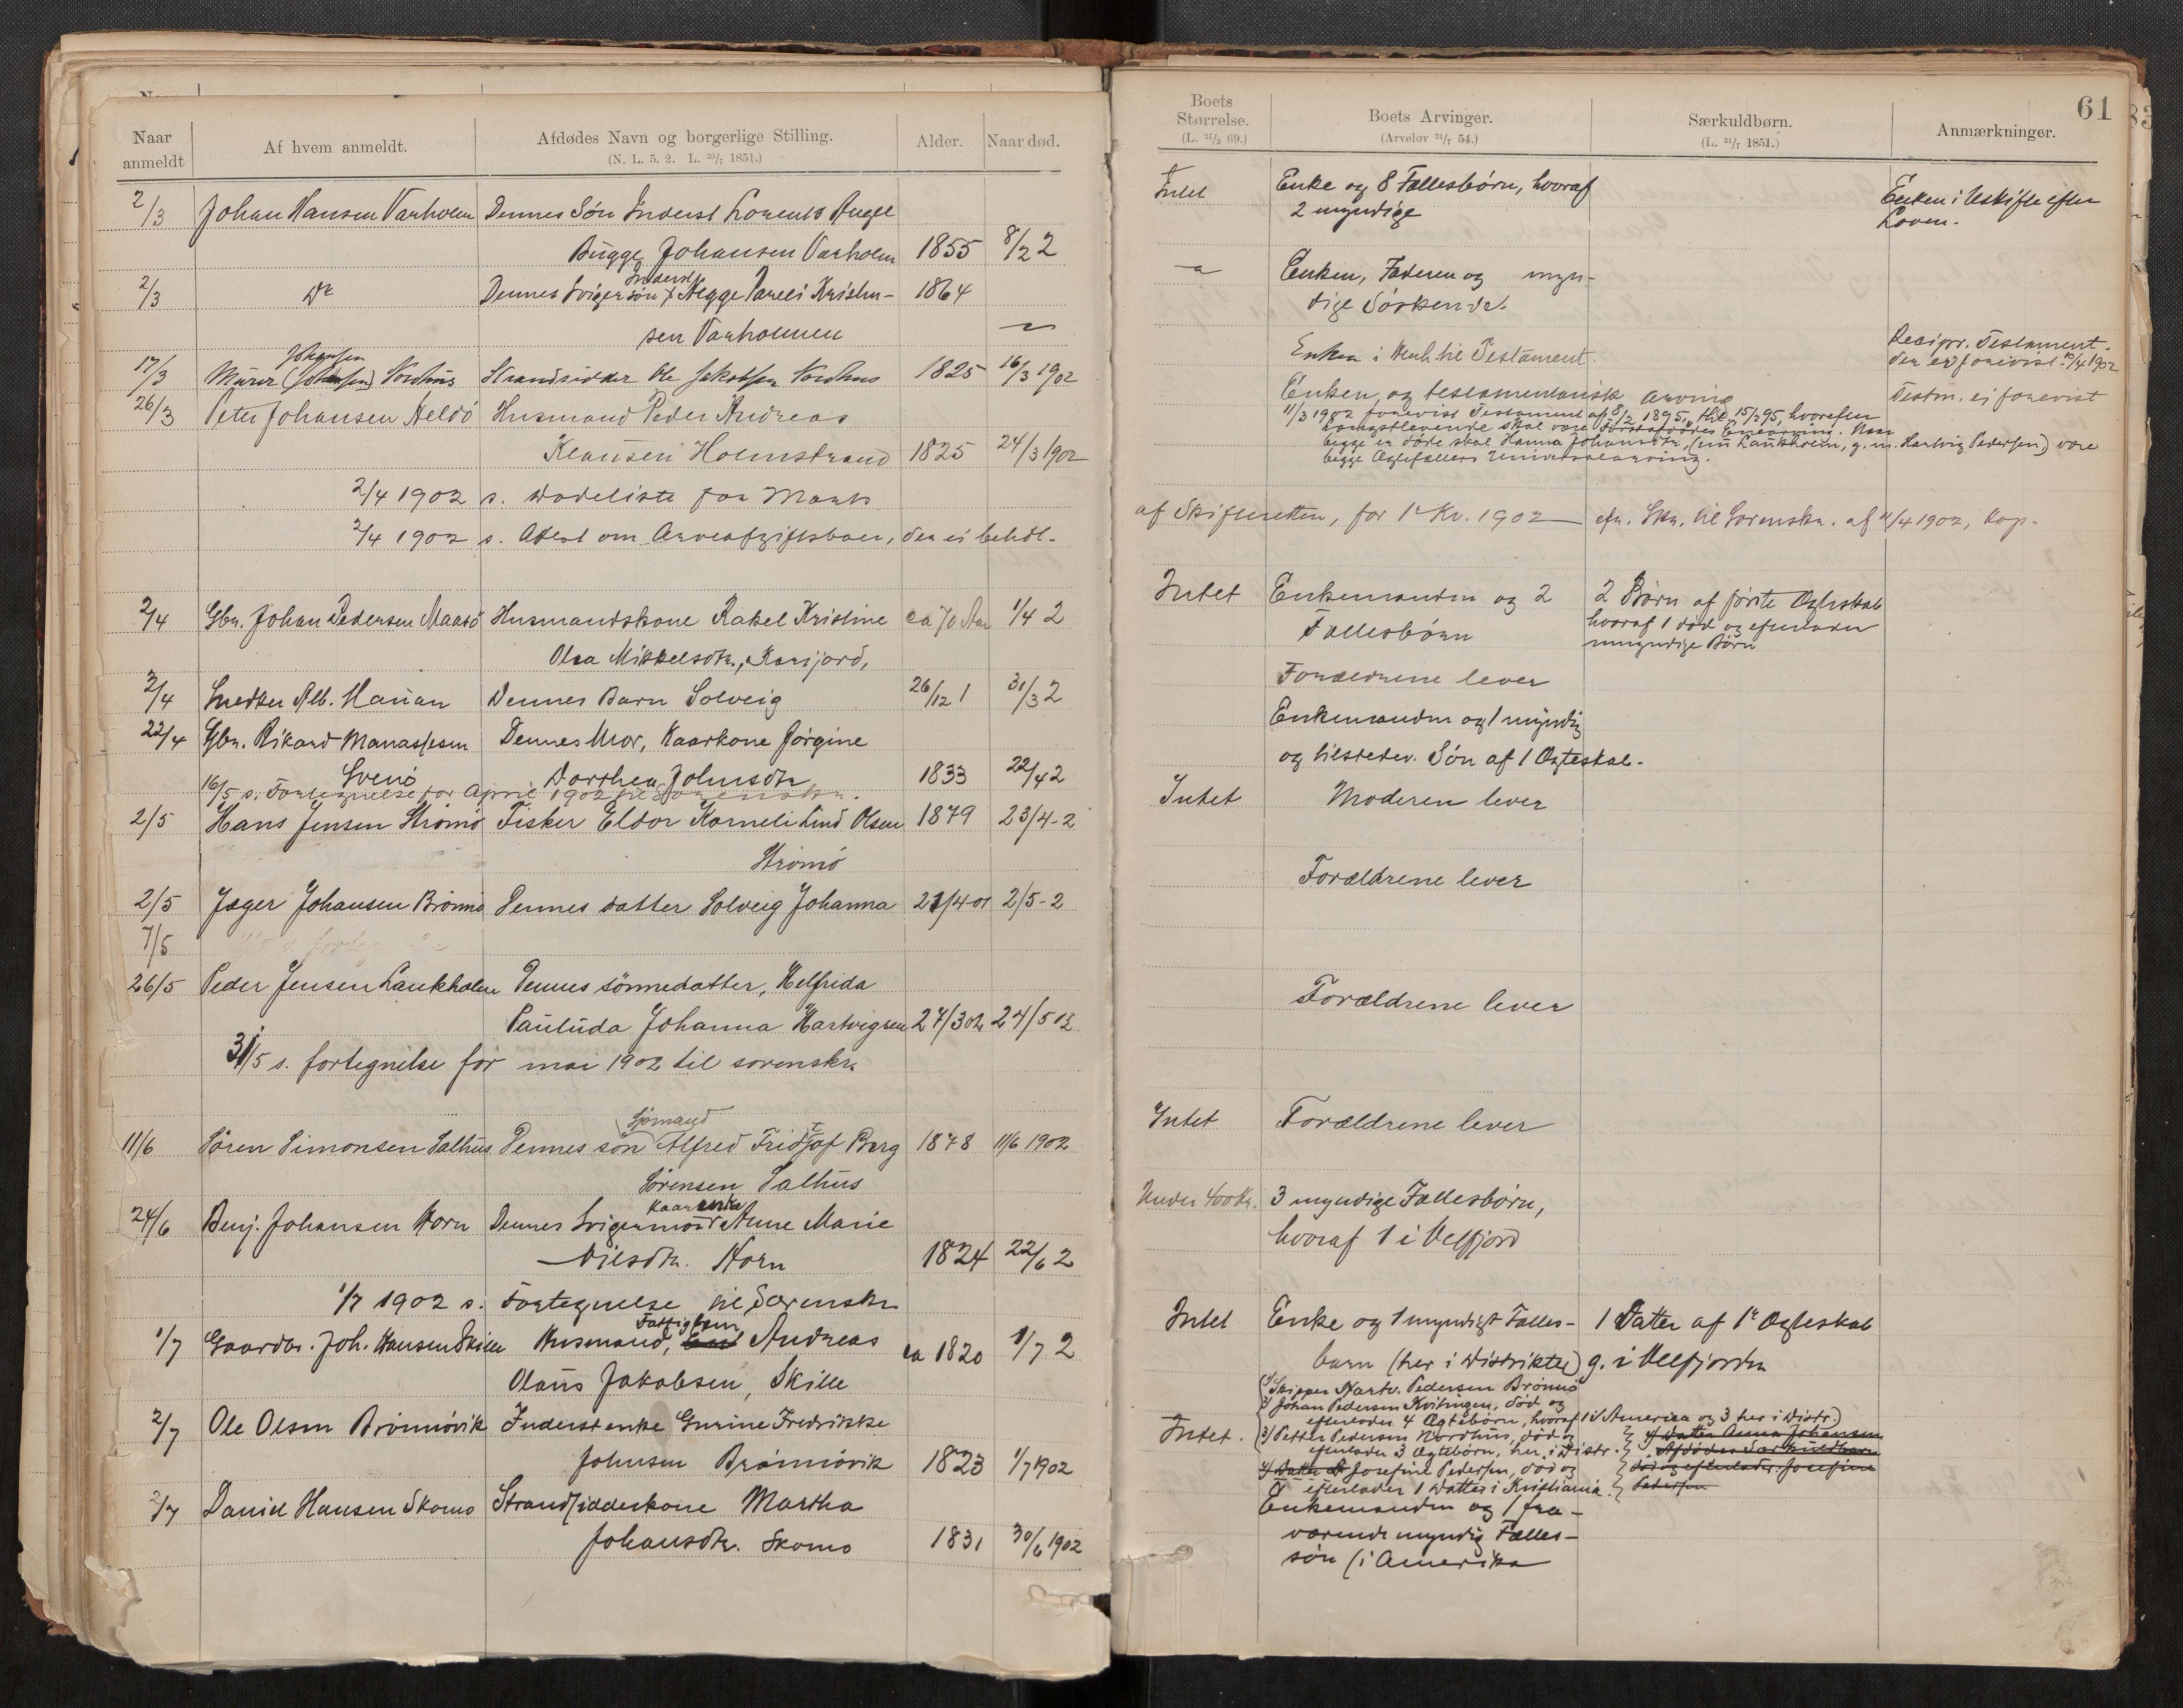 Naar anmeldt
Af hvem anmeldt.
Afdødes Navn og borgerlige Stilling.
(N. L. 5. 2. L. 20/7 1851.)
Alder.
Naar død.
2/3 Johan Hansen Varholm Dennes Søn Inderst Lorents Angel
Bugge Johansen Varholm 1855 8/2 2
Inderst
2/3 Do Dennes Svigersøn Kristen- 1864
sen Varholmen
Johansen
17/3 Murer (Johansen) Nordhus Strandsidder Ole Jakobsen Nordhus 1825 16/3 1902
26/3 Peter Johansen Heldö Husmand Peder Andreas
Klausen Holmstrand 1825 24/3 1902
2/4 1902 s. Dødeliste for Marts
2/4 1902 s. Attest om Arveafgiftsboer, der ei behdl.
2/4 Gbr. Johan Pedersen Maasö Husmandskone Rakel Kristine ca 70 Aar 1/4 2
Olea Mikkelsdtr., Karsjord,
2/4 Snedker Alb. Hanan Dennes Barn Solveig 26/12 1 31/3 2
22/4 Gbr. Rikard Manassesen Dennes Mor, Kaarkone Jørgine
Svenö Dorthea Johnsdtr. 1833 22/4 2
16/5 s. Fortegnelse for April 1902 til Sorenskr.
2/5 Hans Jensen Strömö Fisker Eldor Korneli Lind Olsen 1879 23/4-2
Strömö
2/5 Jæger Johansen Brönnö Dennes datter Solveig Johanna 23/4 01 2/5-2
7/5
26/5 Peder Jensen Lankholm Dennes sönnedatter, Helfrida
Pauluda Johanna Hartvigsen 27/3 02 24/5 02
31/5 s. fortegnelse for mai 1902 til sorenskr.
Sjömand
11/6 Sören Simonsen Salhus Dennes sön Alfred Fridtjof Berg 1878 11/6 1902
Sörensen Salhus
Kaarenke
24/6 Benj. Johansen Horn Dennes Svigermor Anne Marie
Nilsdtr. Horn 1824 22/6 2
1/7 1902 s. Fortegnelse til Sorenskr
Fattiglem
1/7 Gaardbr. Joh. Hansen Skille Husmand, Andreas ca 1820 1/7 2
Olaus Jakobsen, Skille
2/7 Ole Olsen Brönnövik Inderstenke Gurine Fredrikke
Johnsen Brönnövik 1823 1/7 1902
2/7 Daniel Hansen Skomo Strandsidderkone Martha
Johansdtr. Skomo 1831 30/6 1902
61
Boets Størrelse.
(L. 27/3 69.)
Boets Arvinger.
(Arvelov 31/7 54.)
Særkuldbørn.
(L. 31/7 1851.)
Anmærkninger.
Intet Enke og 8 Fællesbörn, hvoraf Enken i Uskifte efter
2 myndige Loven.
Enken, Faderen og myn-
dige Söskende.
Recipr. Testament.
Enken i Henh. til Testament. den er forevist 10/4 1902
Enken og testamentarisk arving Testm. ei forevist
11/3 1902 forevist Testament af 8/2 1895, thl. 15/2 95, hvorefter
længstlevende skal være Førstafdødes Enearving. Naar
begge er døde skal Hanna Johansdtr. (nu Lankholm, g. m. Hartvig Pedersen) være
begge Ægtefællers Universalarving.
af Skifteretten, for 1e Kv. 1902 efr. Skr. til Sorenskr. af 11/4 1902, Kop.
Intet Enkemanden og 2 2 Börn af förste Ægteskab
Fællesbörn hvoraf 1 död og efterlader
umyndige Börn
Forældrene lever
Enkemanden og 1 myndig
og tilstedev. Sön af 1 Ægteskab.
Intet Moderen lever
Forældrene lever
Forældrene lever
Intet Forældrene lever
Under 400 Kr. 3 myndige Fællesbörn,
hvoraf 1 i Velfjord
Intet Enke og 1 myndigt Fælles- 1 Datter af 1e Ægteskab
barn (her i Distriktet) g. i Velfjorden
1) Skipper Hartv. Pedersen Brönnö
2) Johan Pedersen Kvitingen, död og
efterlader 4 Ægtebörn, hvoraf 1 i America og 3 her i Distr.
Intet. 3) Petter Pedersen Nordhus, död og 4) Datter Anna Johansen
efterlader 3 Ægtebörn, her i Distr. Afdödes Særkuldbarn
4) Datter Josefine Pedersen, död og död og efterlader Josefine
efterlader 1 Datter i Kristiania. Pedersen
Enkemanden og 1 fra-
værende myndig Fælles-
sön (i Amerika